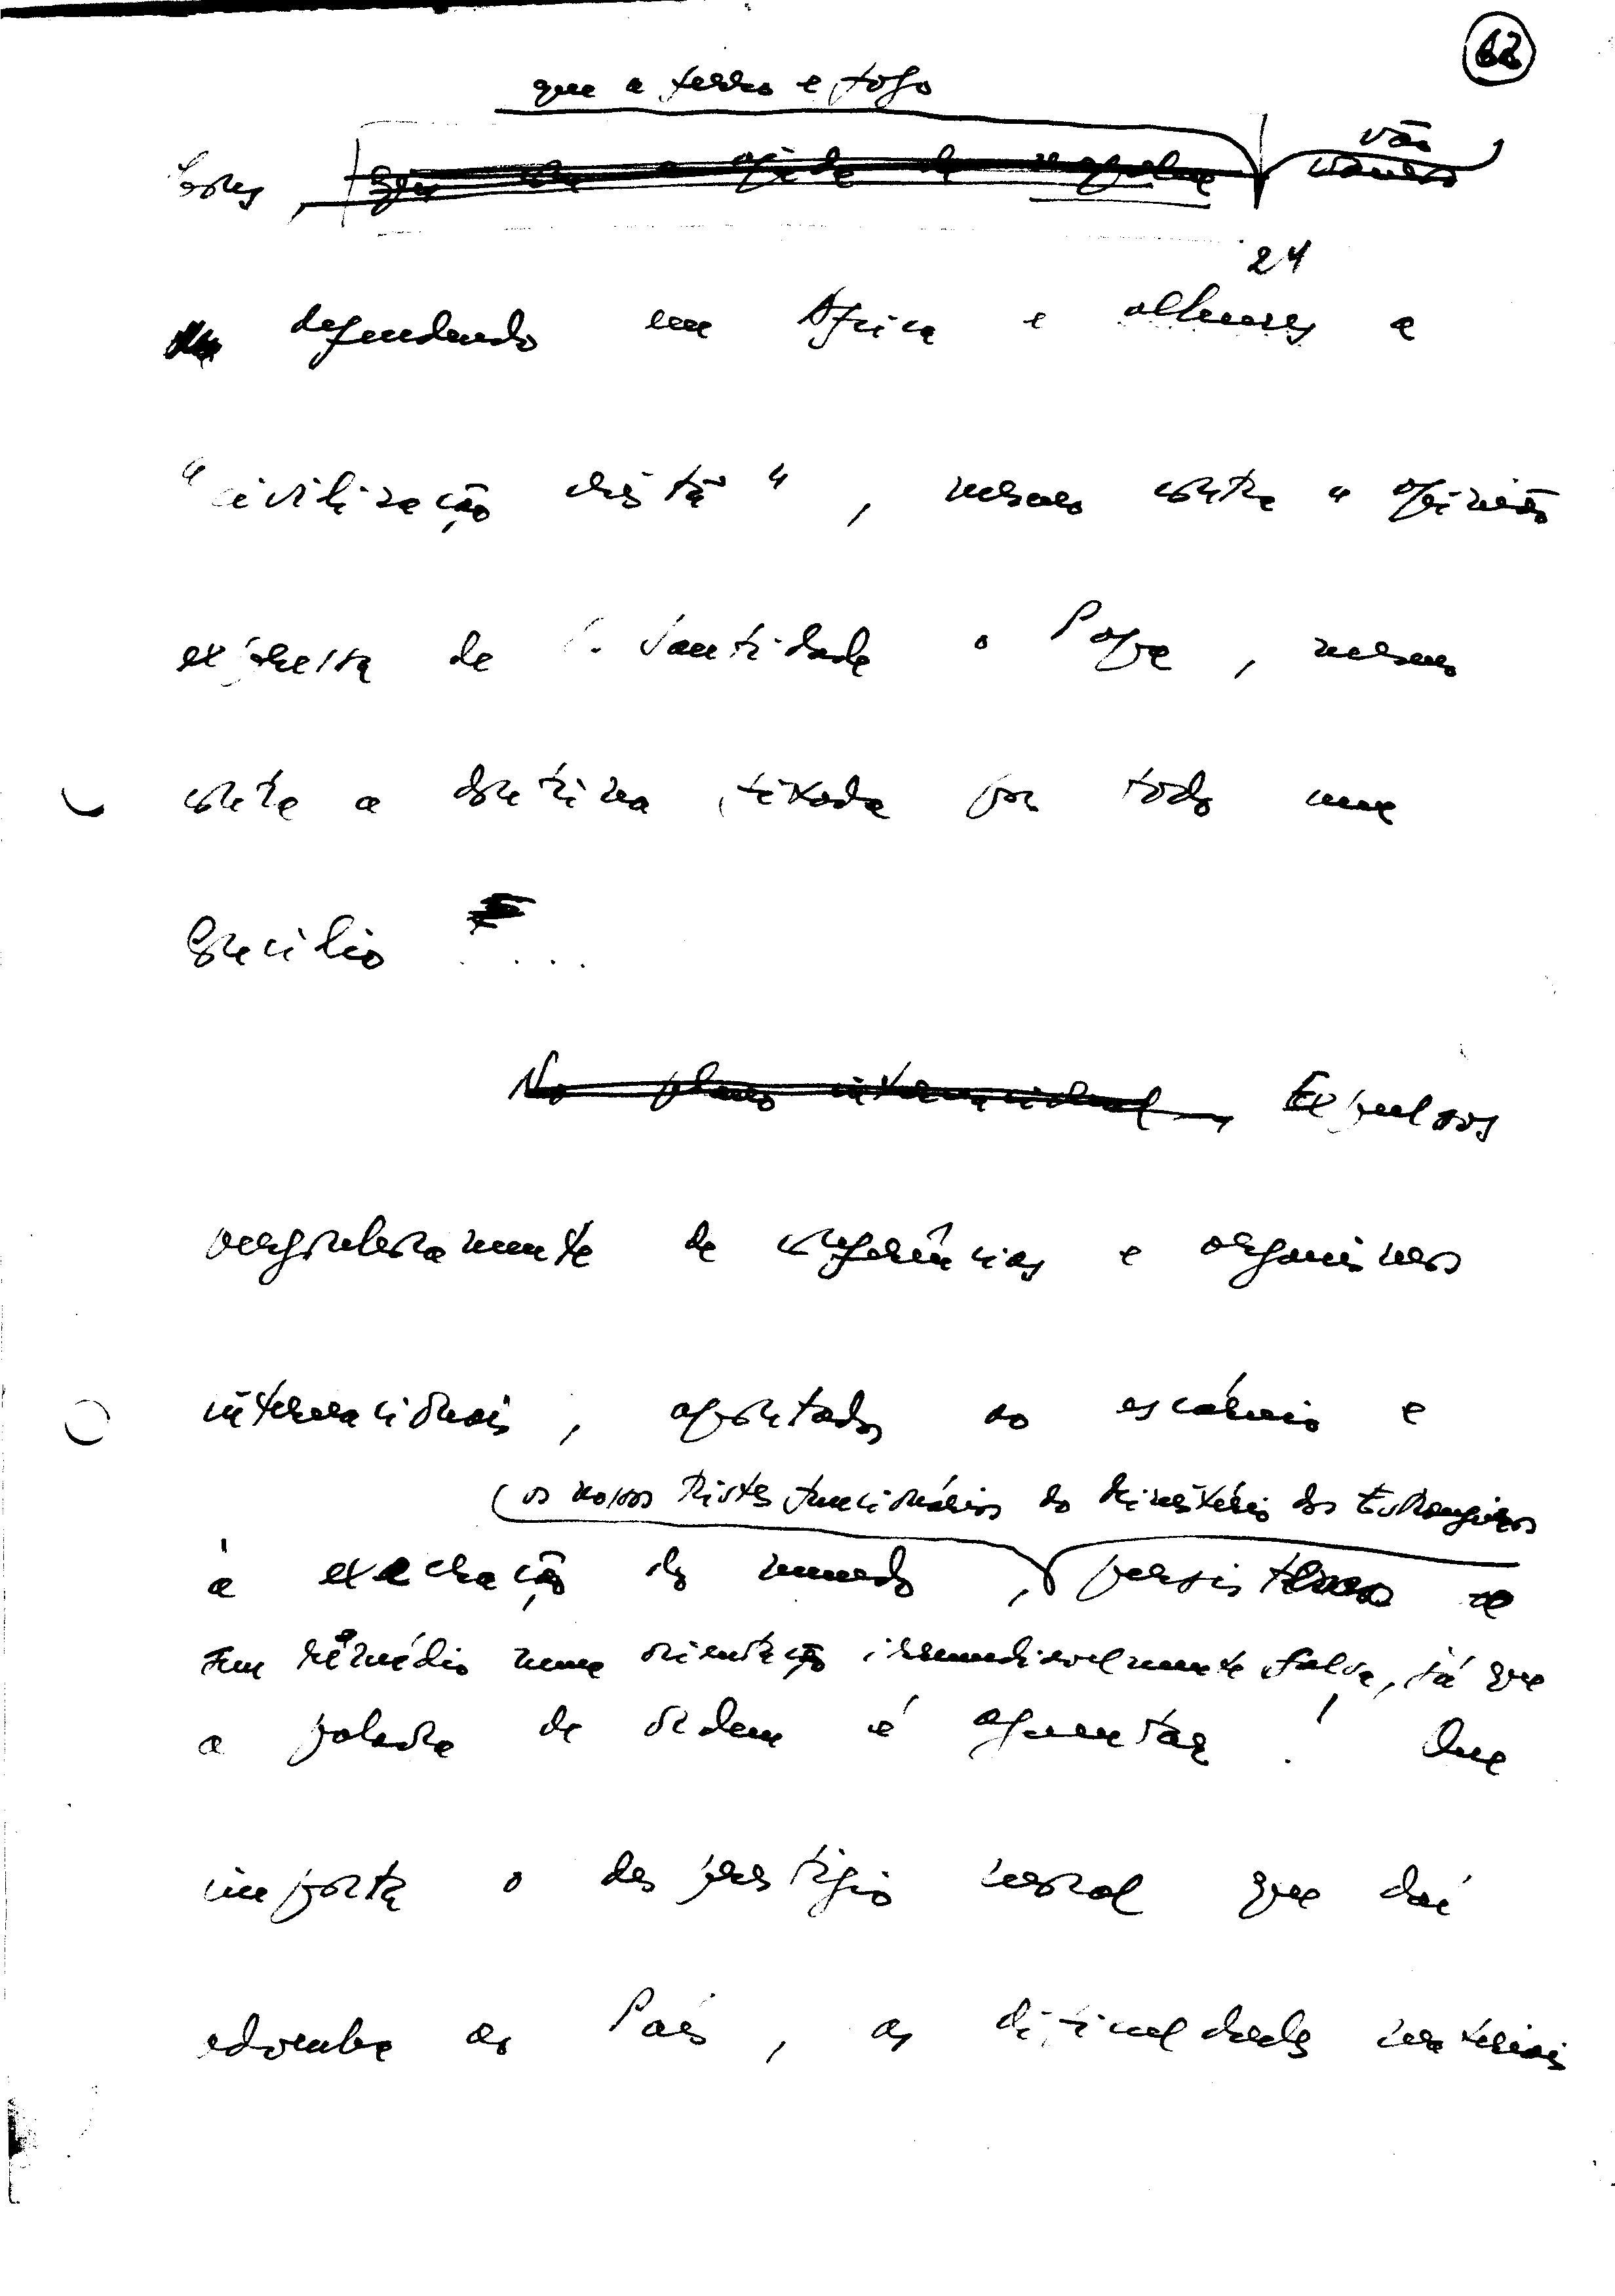 62
que a ferro e fogo
vão
24
defendendo em África e alhures a
"civilização cristã", mesmo contra a opinião
expressa de S. Santidade o Papa, mesmo
contra a doutrina fixada por todo um
Concílio ....
No plano internacional, Expulsos
vergonhosamente de conferências e organismos
internacionais, apontados ao escárnio e
os nossos tristes funcionários do Ministério dos Estrangeiros
à execração do mundo, persistem
sem remédio numa orientação irremediavelmente falsa, já que
a palavra de ordem é aguentar! Que
importa o desprestígio moral que daí
advenha ao País, as dificuldades materiais